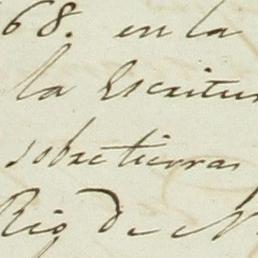 68. en la
la Escritu
sobre tierras
Rio de N